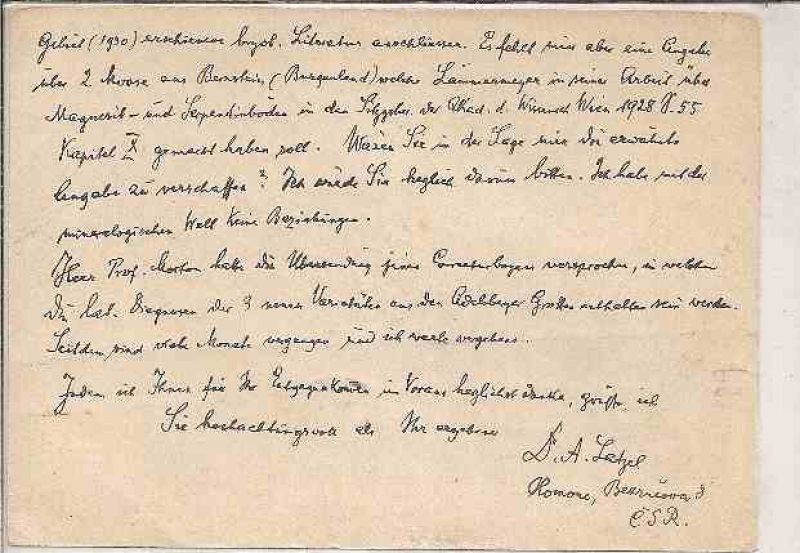 Gebiet (1930) erschienene bryol. Literatur anschliesse. Es fehlt mir aber eine Angabe
über 2 Moose aus Bernstein (Burgenland) welche Lämmermayr in seiner Arbeit über
Magnesit- und Serpentinboden in den Sitzgsber. der Akad. d. Wissensch Wien 1928 S. 55
Kapitel X gemacht haben soll. Wären Sie in der Lage mir die erwähnte
Angabe zu verschaffen? Ich würde Sie herzlich darum bitten. Ich habe mit der
mineralogischen Welt keine Beziehungen.
Herr Prof. Morton hatte die Übersendung jenes Correcturbogens versprochen, in welchem
die lat. Diagnosen der 3 neuen Varietäten aus den Adelsberger Grotten enthalten sein werden.
Seitdem sind viele Monate vergangen und ich warte vergebens.
Indem ich Ihnen für Ihr Entgegenkommen im Voraus herzlichst danke, grüsse ich
Sie hochachtungsvoll als Ihr ergebener
Dr. A. Latzel
Komorau,
C.S.R.